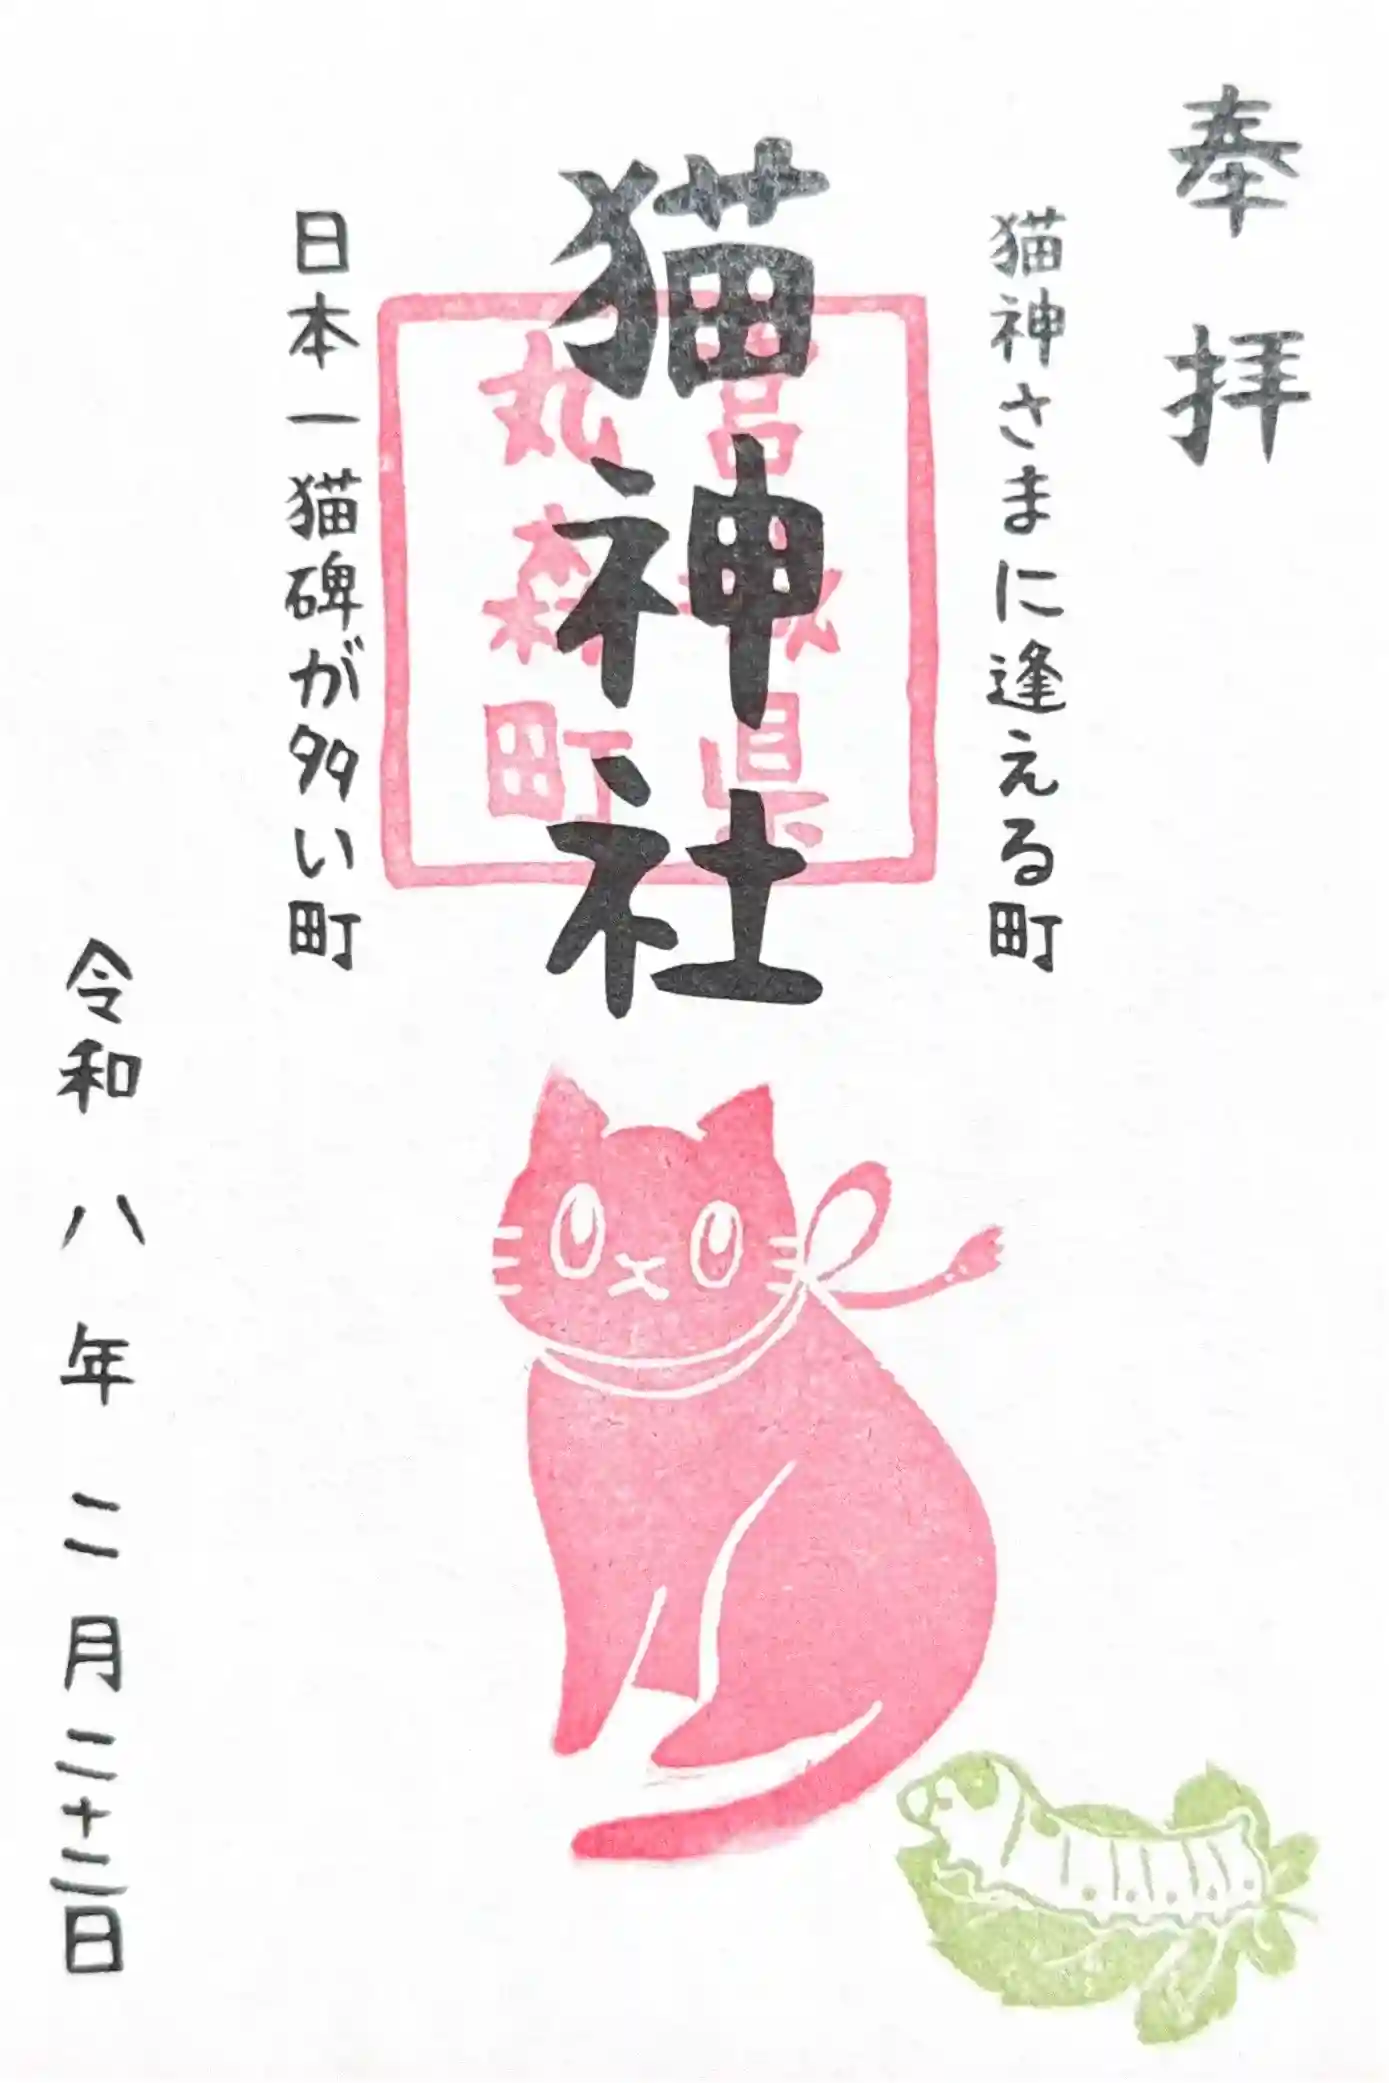 奉拝
猫神さまに逢える町
猫神社
宮城県
丸森町
日本一猫碑が多い町
令和八年二月二十二日